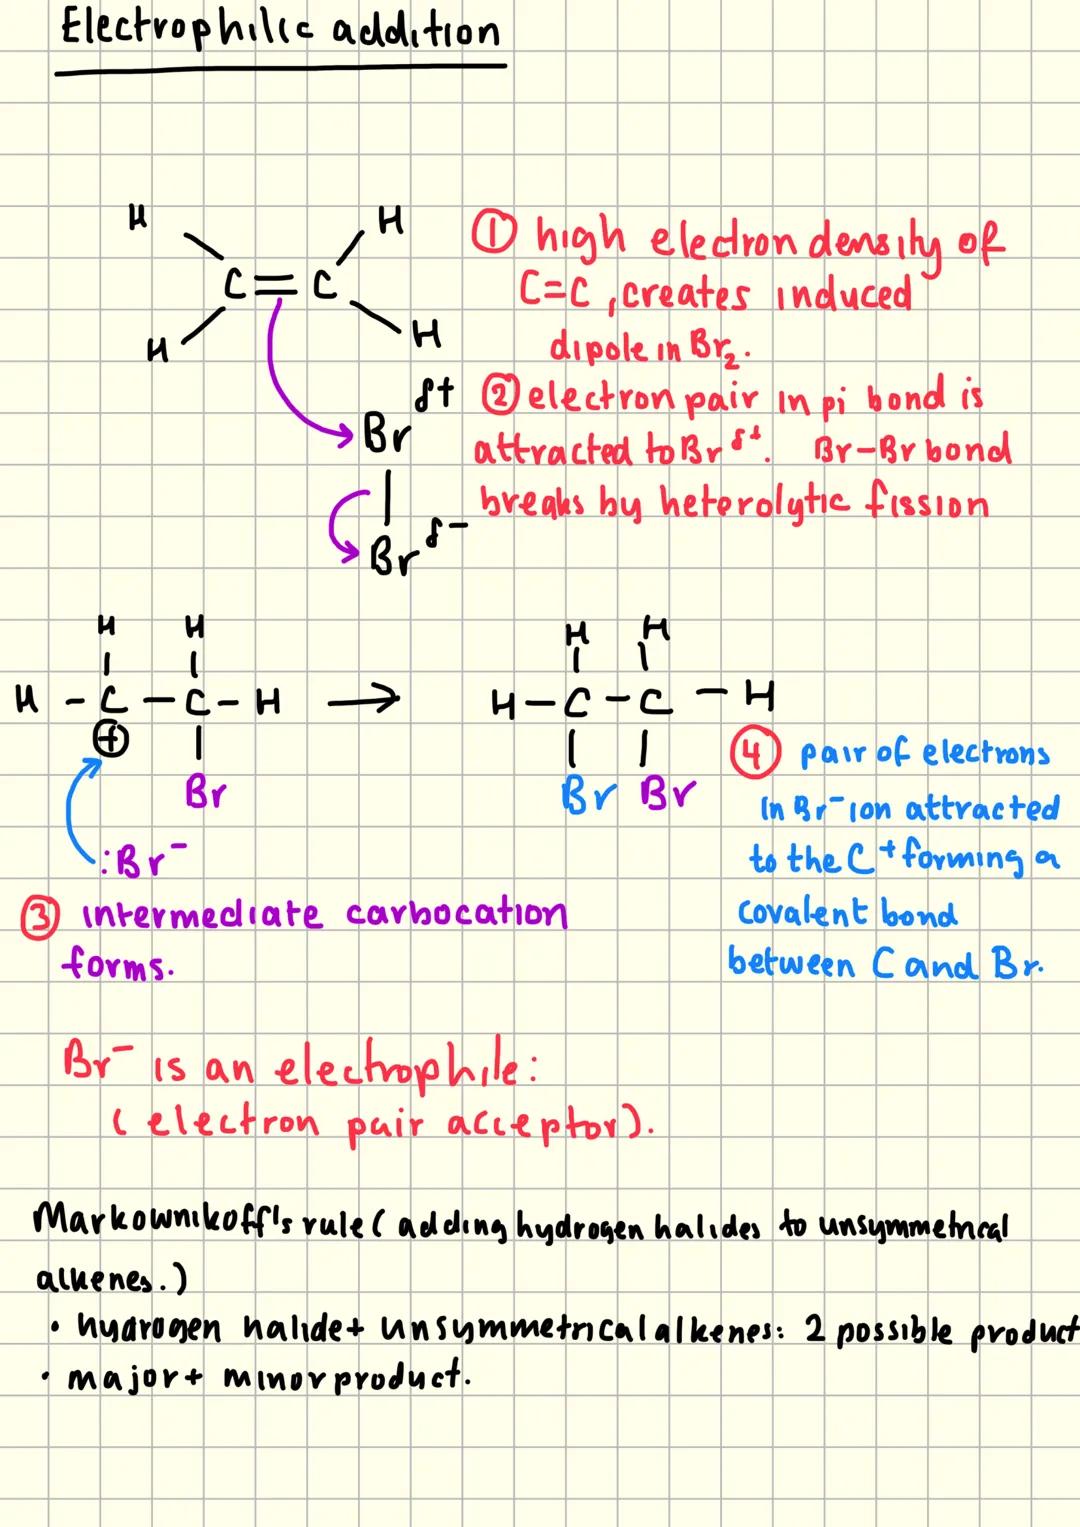 Electrophilic addition
H H
C=C
H H
① high electron density of
C=C, creates induced
dipole in Br₂.
② electron pair in pi bond is
attracted to Br δ+. Br-Br bond
breaks by heterolytic fission
δ+
Br
|
Br δ-
H H
H - C - C - H →
⊕ Br
:Br⁻
H H
H - C - C - H
Br Br
③ intermediate carbocation
forms.
④ pair of electrons
in Br⁻ ion attracted
to the C⁺ forming a
covalent bond
between C and Br.
Br⁻ is an electrophile:
(electron pair acceptor).
Markownikoff's rule (adding hydrogen halides to unsymmetrical
alkenes.)
• hydrogen halide + unsymmetrical alkenes: 2 possible product
• major + minor product.